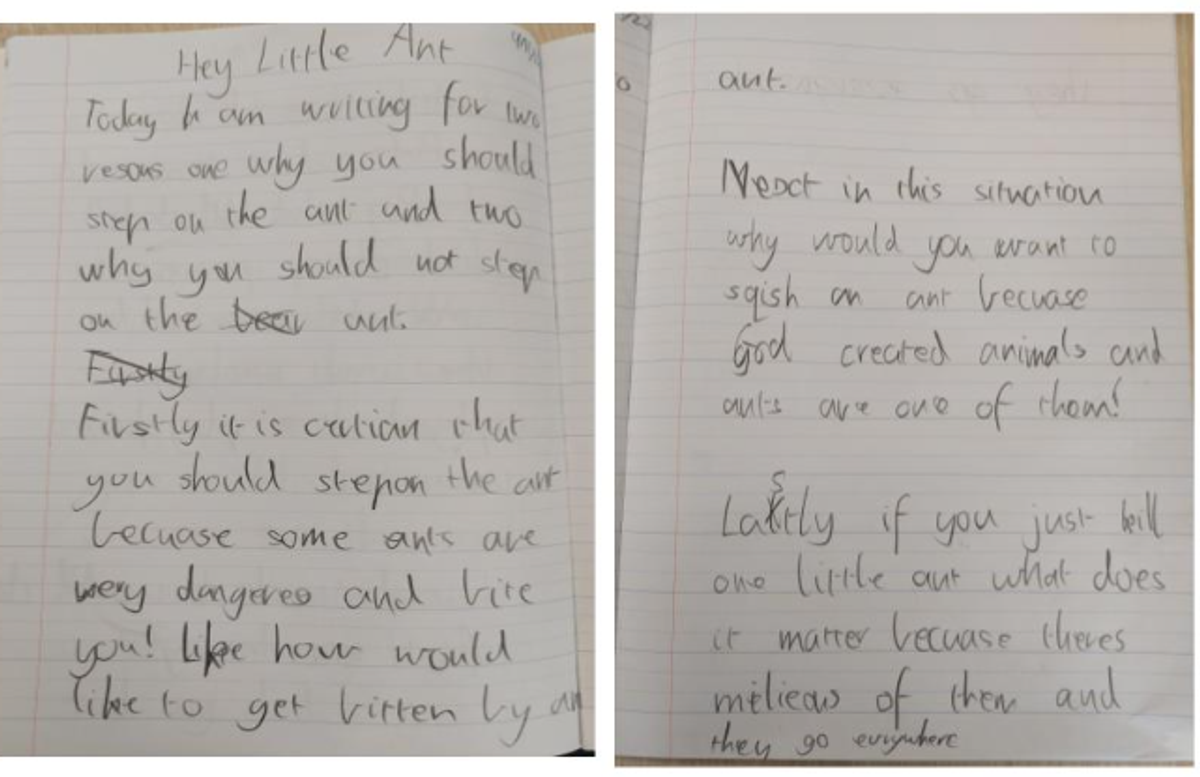 Hey Little Ant
Today h am writing for two
resons one why you should
step on the ant and two
why you should not step
on the bear ant.
Firstly
Firstly it is crutian that
you should stepon the ant
becuase some ants are
very dangeres and bite
you! Like how would
like to get bitten by an
ant.
Nesct in this situation
why would you want to
sqish an ant becuase
God created animals and
ants are one of them!
Lastly if you just kill
one little ant what does
it matter becuase theres
milieas of them and
they go evrywhere